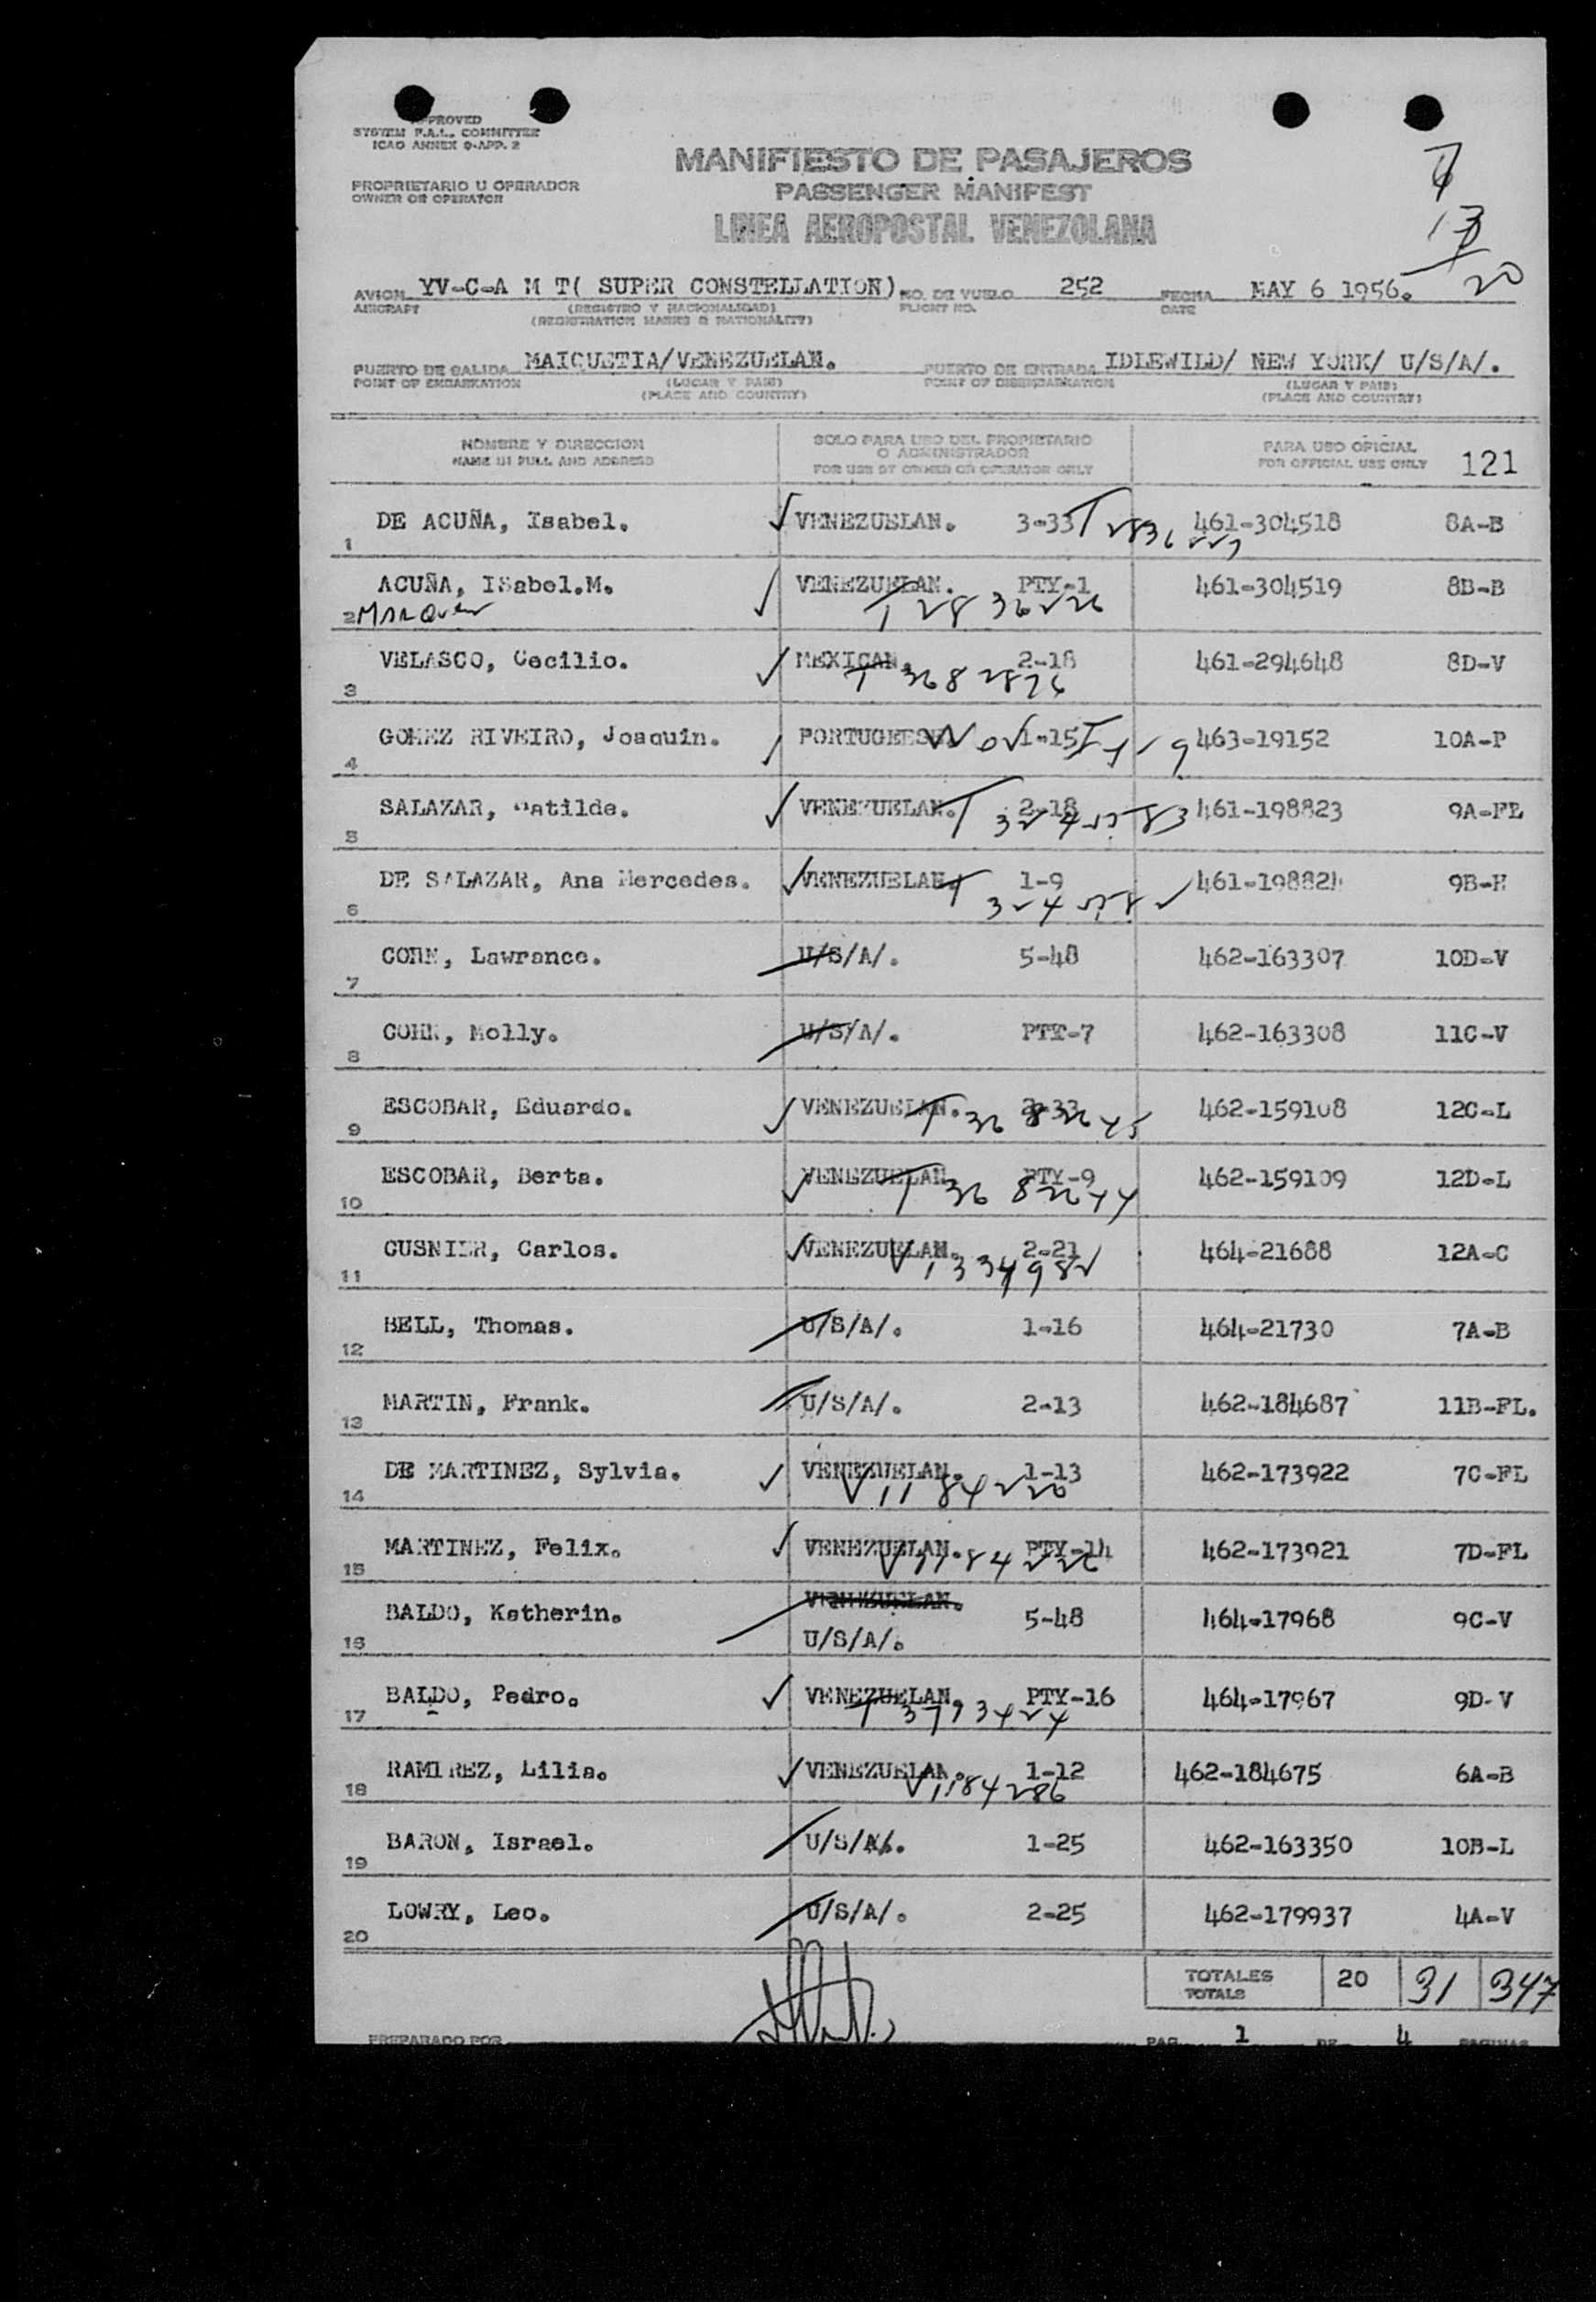 APPROVED
SYSTEM F.A.L. COMMITTEE
ICAO ANNEX 9-APP. 2
PROPRIETARIO U OPERADOR
OWNER OR OPERATOR
MANIFIESTO DE PASAJEROS
PASSENGER MANIFEST
LINEA AEROPOSTAL VENEZOLANA
7
13
20
AVION YV-C-A M T( SUPER CONSTELLATION) NO. DE VUELO 252 FECHA MAY 6 1956.
AIRCRAFT (REGISTRO Y NACIONALIDAD) FLIGHT NO. DATE
(REGISTRATION MARKS & NATIONALITY)
PUERTO DE SALIDA MAIQUETIA/VENEZUELAN. PUERTO DE ENTRADA IDLEWILD/ NEW YORK/ U/S/A/.
POINT OF EMBARKATION (LUGAR Y PAIS) POINT OF DISEMBARKATION (LUGAR Y PAIS)
(PLACE AND COUNTRY) (PLACE AND COUNTRY)
NOMBRE Y DIRECCION SOLO PARA USO DEL PROPIETARIO PARA USO OFICIAL
NAME IN FULL AND ADDRESS O ADMINISTRADOR FOR OFFICIAL USE ONLY 121
FOR USE BY OWNER OR OPERATOR ONLY
1 DE ACUÑA, Isabel. VENEZUELAN. 3-33 461-304518 8A-B
T 2836227
2 ACUÑA, ISabel.M. VENEZUELAN. PTY-1 461-304519 8B-B
Marquez T 2836226
3 VELASCO, Cecilio. MEXICAN. 2-18 461-294648 8D-V
T 3682876
4 GOMEZ RIVEIRO, Joaquin. PORTUGEESE. 1-15 463-19152 10A-P
5 SALAZAR, Matilde. VENEZUELAN. 2-18 461-198823 9A-FL
6 DE SALAZAR, Ana Mercedes. VENEZUELAN. 1-9 461-198824 9B-H
7 COHN, Lawrance. U/S/A/. 5-48 462-163307 10D-V
8 COHN, Molly. U/S/A/. PTY-7 462-163308 11C-V
9 ESCOBAR, Eduardo. VENEZUELAN. 2-33 462-159108 12C-L
T 3682645
10 ESCOBAR, Berta. VENEZUELAN PTY-9 462-159109 12D-L
T 3682644
11 CUSNIER, Carlos. VENEZUELAN. 2-21 464-21688 12A-C
V 1334982
12 BELL, Thomas. U/S/A/. 1-16 464-21730 7A-B
13 MARTIN, Frank. U/S/A/. 2-13 462-184687 11B-FL.
14 DE MARTINEZ, Sylvia. VENEZUELAN. 1-13 462-173922 7C-FL
V 1184220
15 MARTINEZ, Felix. VENEZUELAN. PTY-14 462-173921 7D-FL
16 BALDO, Katherin. VENEZUELAN. 5-48 464-17968 9C-V
U/S/A/.
17 BALDO, Pedro. VENEZUELAN. PTY-16 464-17967 9D-V
T 3793424
18 RAMIREZ, Lilia. VENEZUELAN. 1-12 462-184675 6A-B
V 1184286
19 BARON, Israel. U/S/A/. 1-25 462-163350 10B-L
20 LOWRY, Leo. U/S/A/. 2-25 462-179937 4A-V
TOTALES 20 31 347
TOTALS
PREPARADO POR PAG. 1 DE 4 PAGINAS